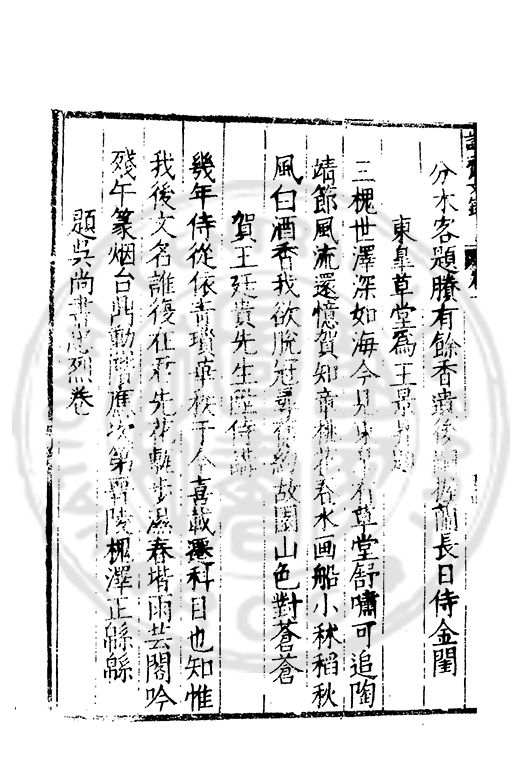 分木客題賸有餘香遺後蘭長日侍金閨
東皐草堂爲王景
三槐世澤深如海今見東草堂舒嘯可追陶
靖節風流還憶賀知章桃花春水画船小秫稻秋
風白酒香我欲脫冠尋舊約故園山色對蒼蒼
賀王廷貴先生陞侍講
幾年侍從依青瑣華秩于今喜載遷科目也知惟
我後文名誰復在君先花甎步濕春堦雨芸閣吟
殘午篆烟台鼎動階應次第晉陵槐澤正緜緜
題吳尚書忠烈卷